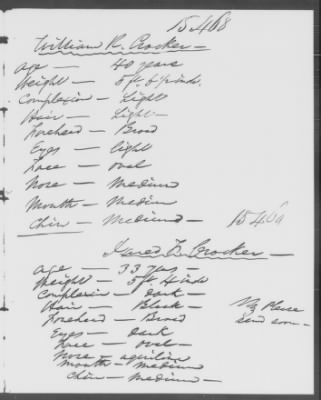 15468
William R. Crocker —
age — 40 years
Height — 5 ft. 6 inds.
Complexion — Light
Hair — Light —
Forehead — Broad
Eyes — light
Face — oval
Nose — Medium
Mouth — Medium
Chin — Medium —
15468
Crocker —
age — 33 years —
Height — 5 ft. inds
Complexin — dark —
Hair — Black —
Forehead — Broad
Eyes — dark
Face — oval —
Nose — aquiline
Mouth — Medium
Chin — Medium —
Please
send soon —